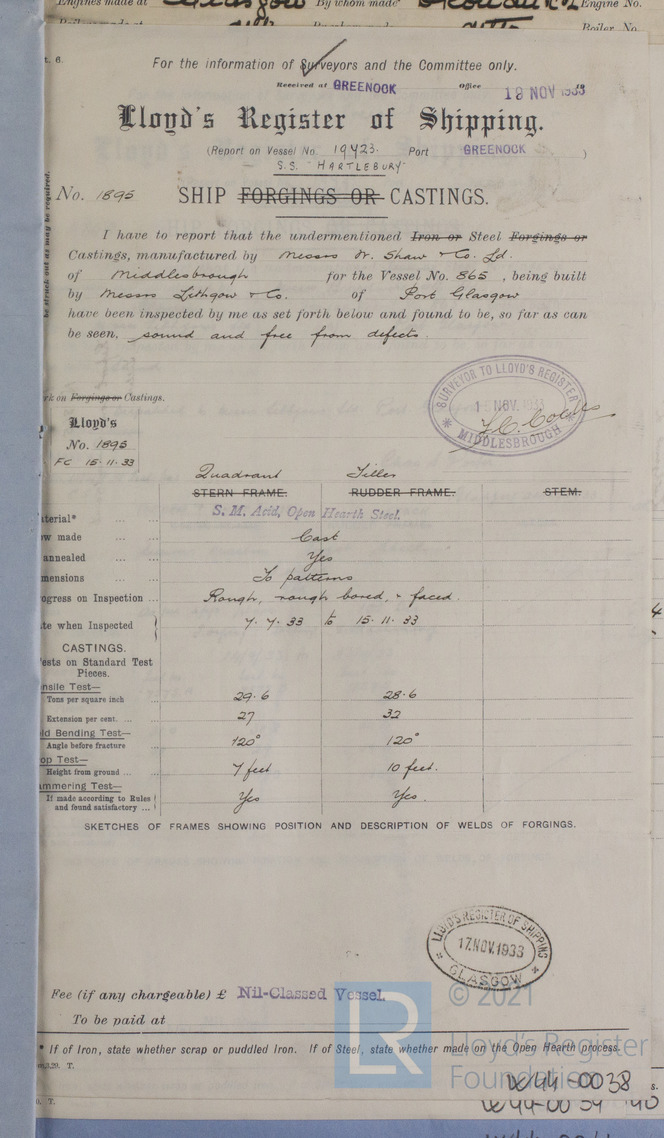 Engines made at Glasgow By whom made Engine No.
Boiler No.
t. 6.
For the information of Surveyors and the Committee only.
Received at GREENOCK Office 18 NOV 1933
Lloyd's Register of Shipping.
(Report on Vessel No. 19423. Port GREENOCK )
S.S. "HARTLEBURY"
be struck out as may be required.
No. 1895 SHIP FORGINGS OR CASTINGS.
I have to report that the undermentioned Iron or Steel Forgings or
Castings, manufactured by Messrs W. Shaw & Co. Ld.
of Middlesbrough for the Vessel No. 865, being built
by Messrs Lithgow & Co. of Port Glasgow
have been inspected by me as set forth below and found to be, so far as can
be seen, sound and free from defects.
SURVEYOR TO LLOYD'S REGISTER
NOV. 1933
MIDDLESBROUGH
rk on Forgings or Castings.
Lloyd's
No. 1895
FC 15.11.33
Quadrant Tiller
STERN FRAME. RUDDER FRAME. STEM.
terial* ... ... S. M. Acid, Open Hearth Steel.
ow made ... ... Cast
annealed ... ... Yes
mensions ... ... To patterns
ogress on Inspection ... Rough, rough bored, & faced.
te when Inspected 7.7.33 to 15.11.33
CASTINGS.
ests on Standard Test
Pieces.
nsile Test—
Tons per square inch 29.6 28.6
Extension per cent. ... 27 32
ld Bending Test—
Angle before fracture ... 120° 120°
op Test—
Height from ground ... ... 7 feet 10 feet.
mmering Test—
If made according to Rules
and found satisfactory ... Yes Yes.
SKETCHES OF FRAMES SHOWING POSITION AND DESCRIPTION OF WELDS OF FORGINGS.
LLOYD'S REGISTER OF SHIPPING
17.NOV.1933
GLASGOW
Fee (if any chargeable) £ Nil-Classed Vessel.
To be paid at
© 2021
LR
Lloyd's Register
Foundation
* If of Iron, state whether scrap or puddled Iron. If of Steel, state whether made on the Open Hearth process.
W44-0038